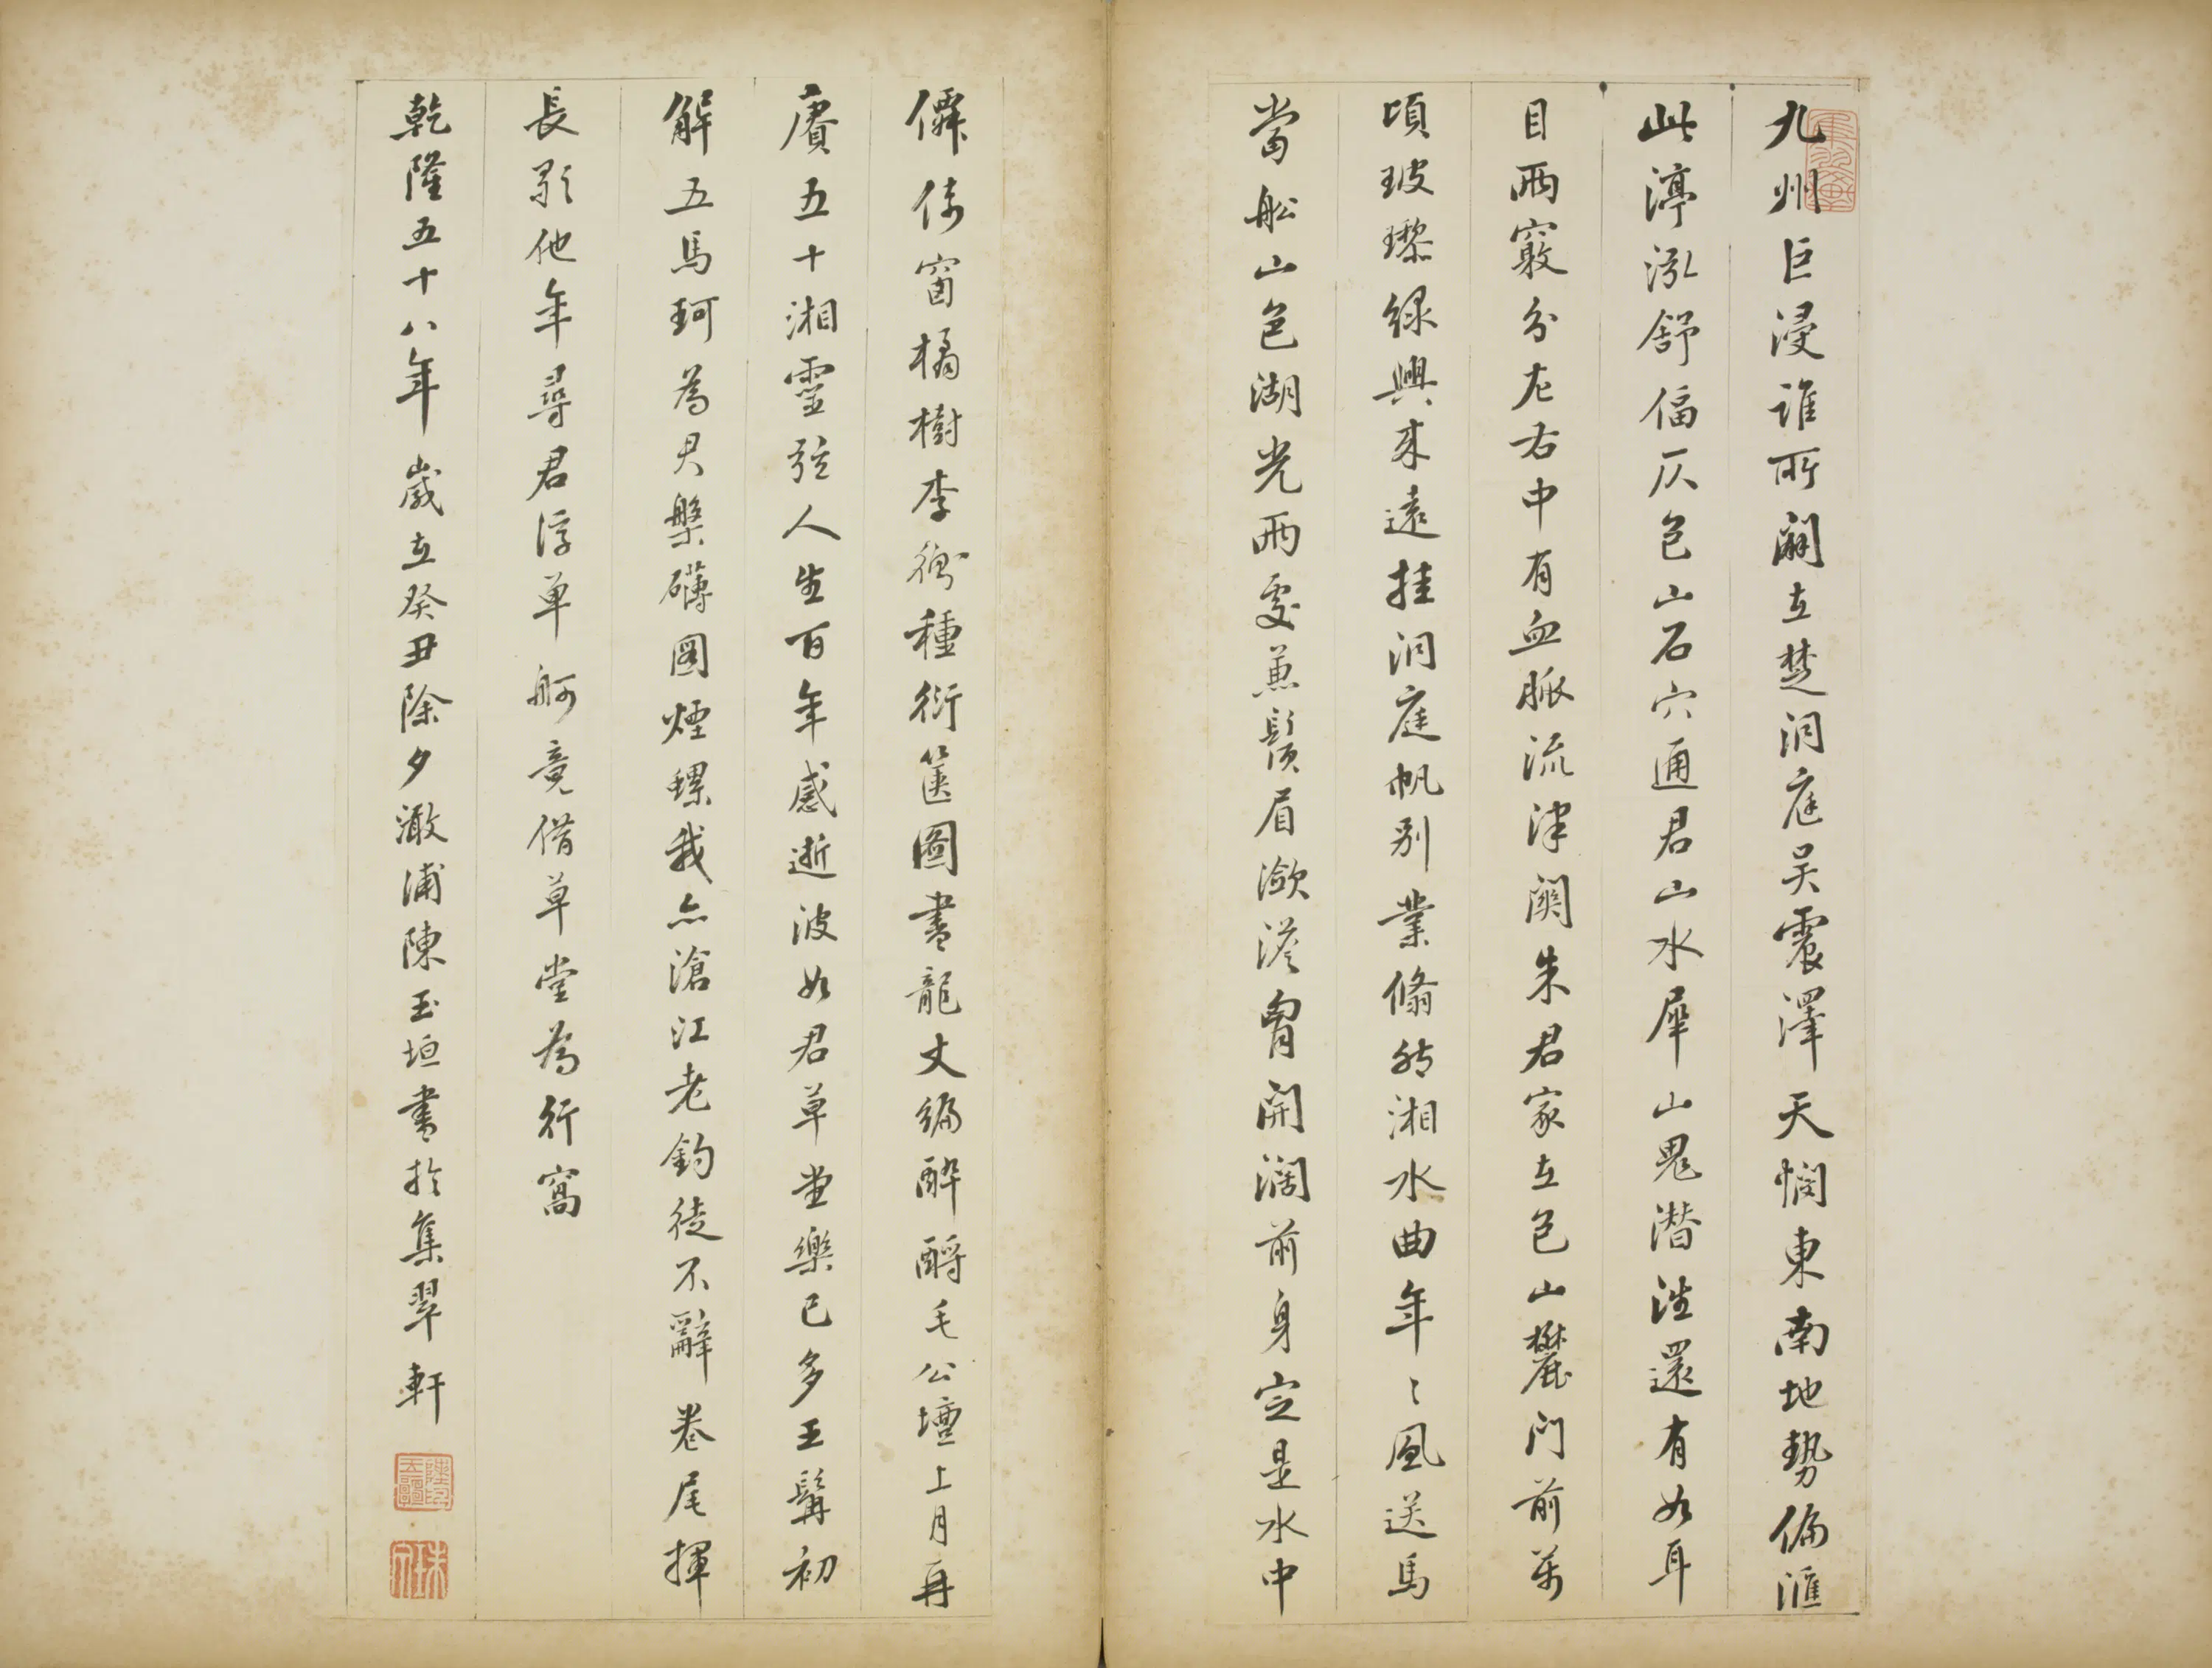 九州巨浸誰所闢在楚洞庭吳震澤天憫東南地勢偏滙
此渟泓舒偪仄包山石穴通君山水犀山鬼潛往還有如耳
目兩竅分左右中有血脈流津關朱君家在包山麓門前萬
頃玻瓈綠興來遠挂洞庭帆別業翛然湘水曲年〻風送馬
當船山色湖光兩處兼鬚眉瀲灔胷開濶前身定是水中
僊倚窗橘樹李衡種衍篋圖書龍丈編醉酹毛公壇上月再
賡五十湘靈弦人生百年感逝波如君草堂樂已多王髯初
解五馬珂為君槃礴圖煙螺我亦滄江老釣徒不辭卷尾揮
長歌他年尋君浮單舸竟借草堂為行窩
乾隆五十八年歲在癸丑除夕澉浦陳玉垣書於集翠軒